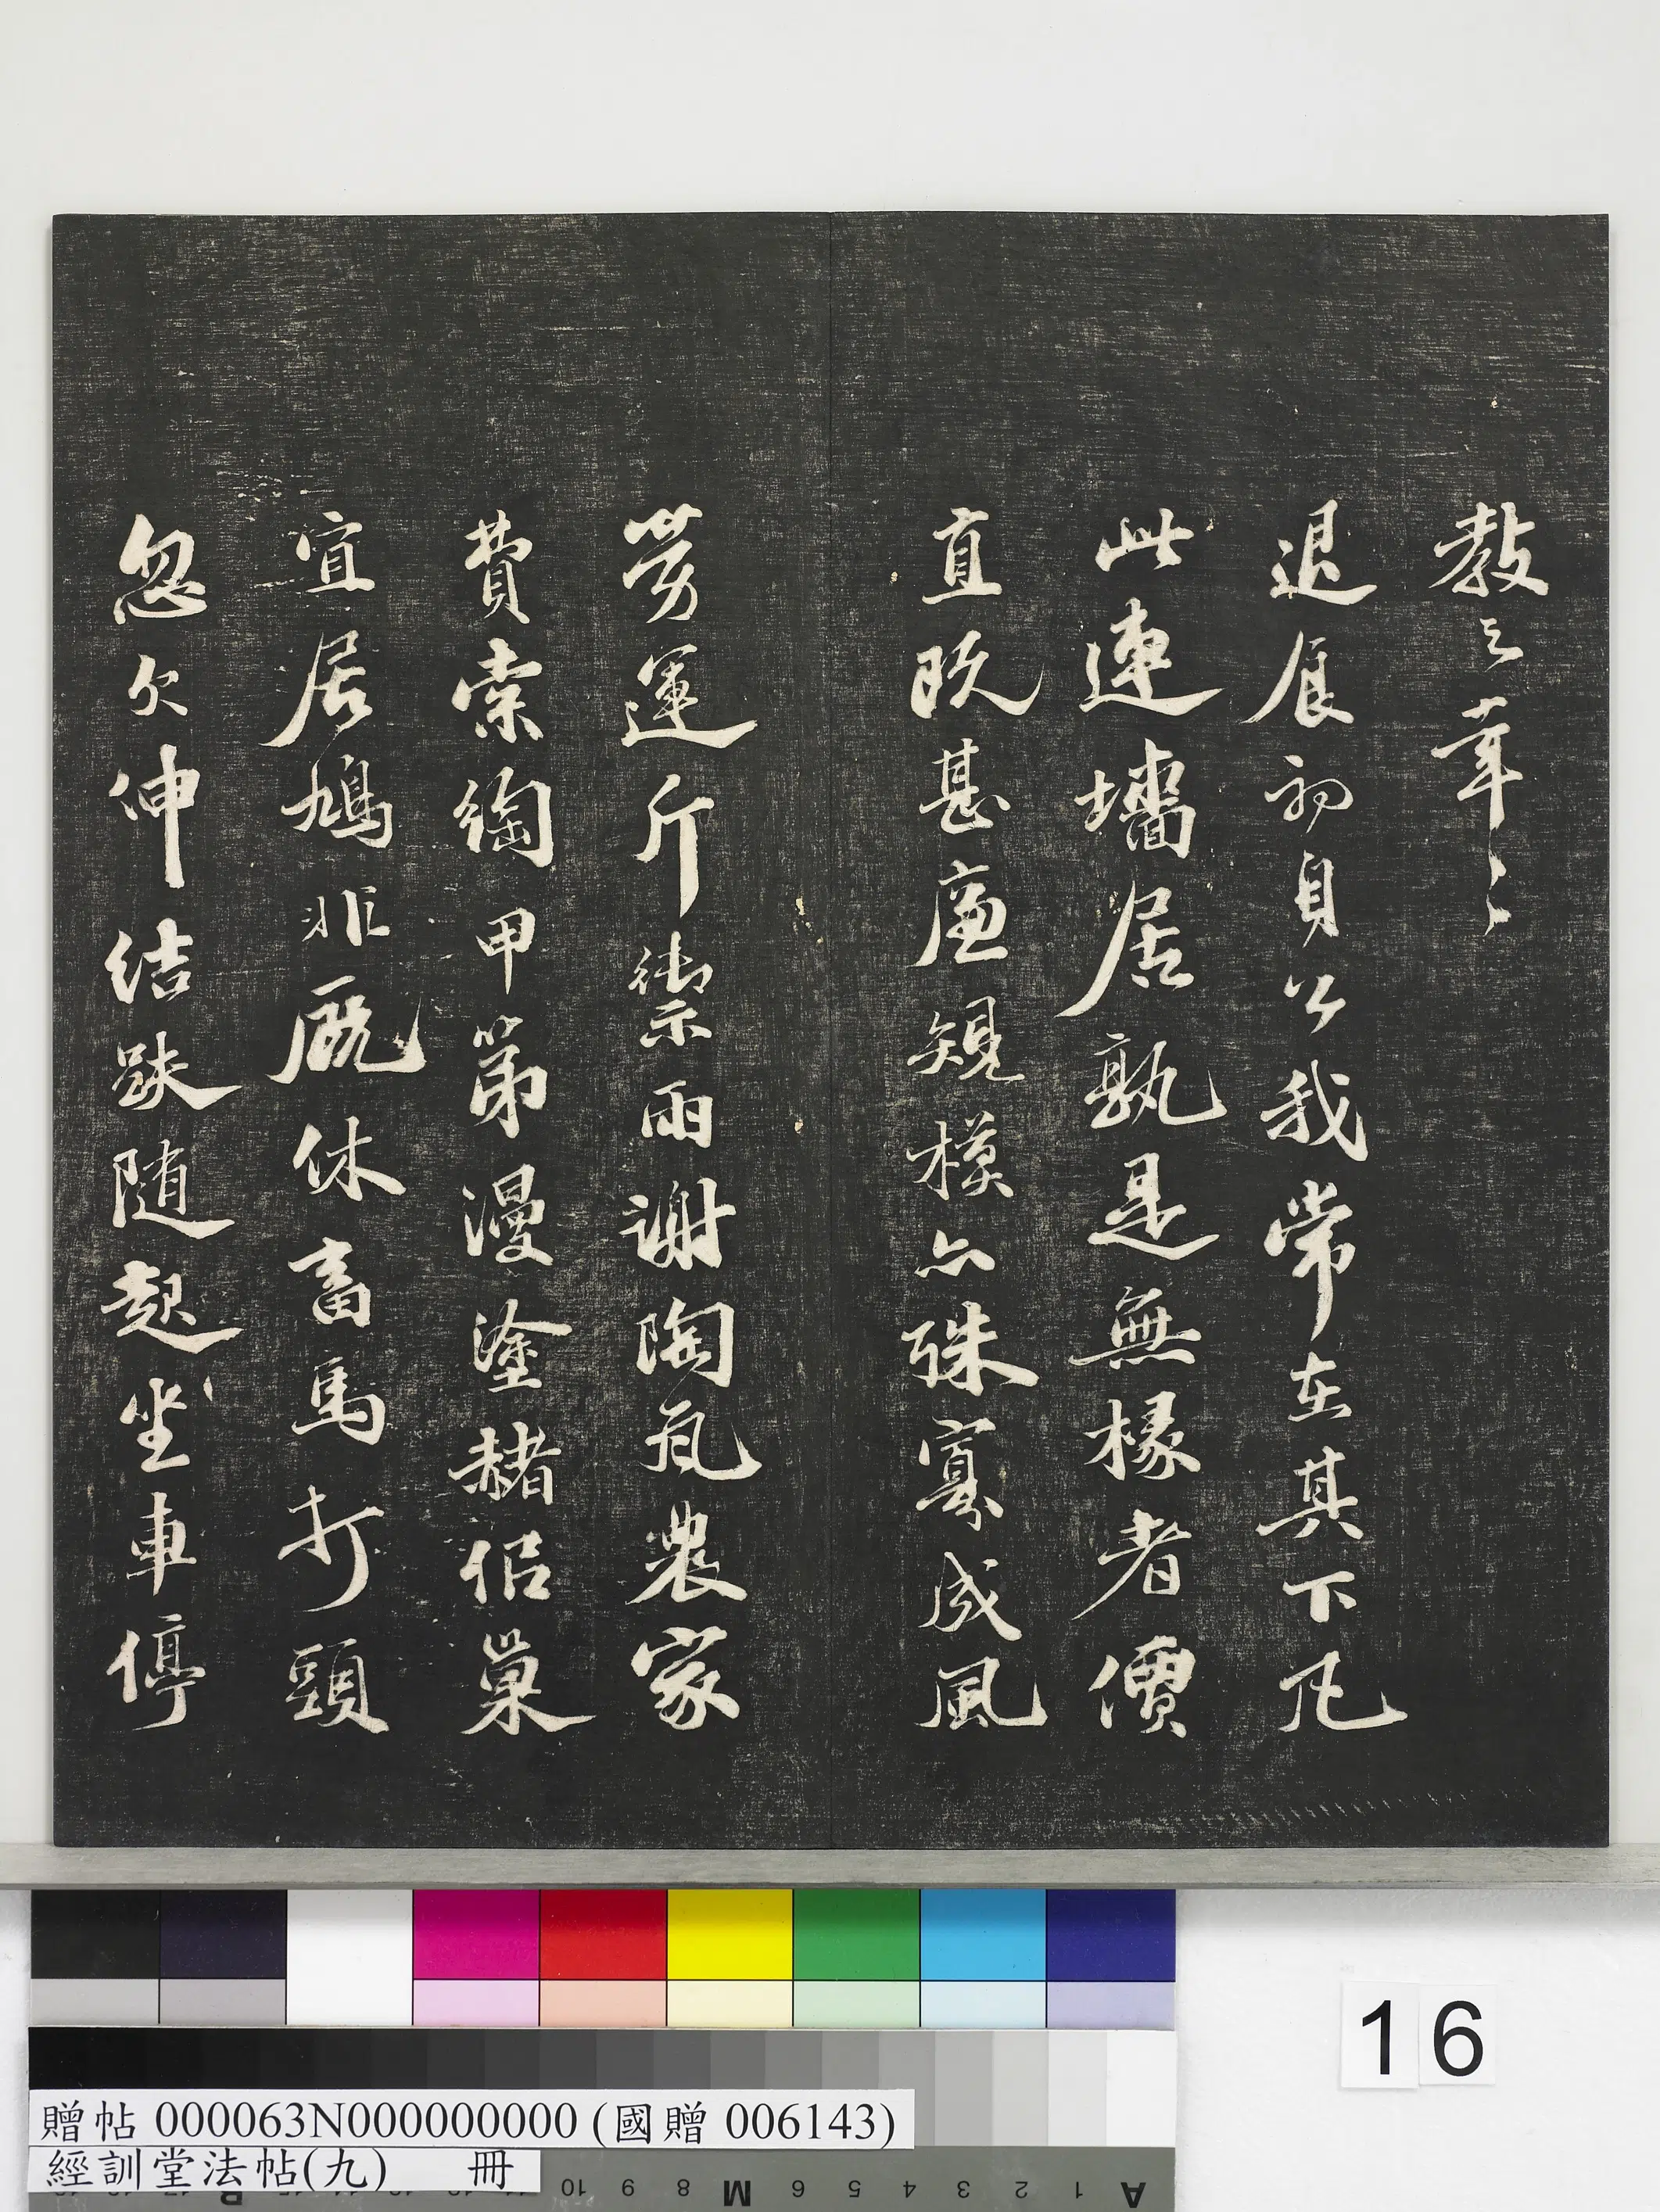 教之幸〻
退食初自公我常在其下凡
此連墻居孰是無椽者價
直既甚廉規模亦殊寡成風
勞運斤禦雨謝陶瓦農家
費索綯甲第漫塗赭佀巢
宜居鳩非厩休畜馬打頭
忽欠伸結趺随起坐車停
16
贈帖 000063N000000000 (國贈 006143)
經訓堂法帖(九) 冊